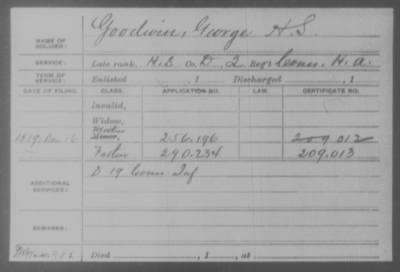 NAME OF SOLDIER: Goodwin, George H. S.
SERVICE: Late rank, H.S. Co. D, 2 Reg't Conn. H. A.
TERM OF SERVICE: Enlisted , 1 Discharged , 1
DATE OF FILING. CLASS. APPLICATION NO. LAW. CERTIFICATE NO.
Invalid,
Widow,
1879. Dec 16 Mother 256.196 209.012
Minor,
Father 290.234 209.013
ADDITIONAL SERVICES: D 19 Conn Inf
REMARKS:
Died , 1 , at